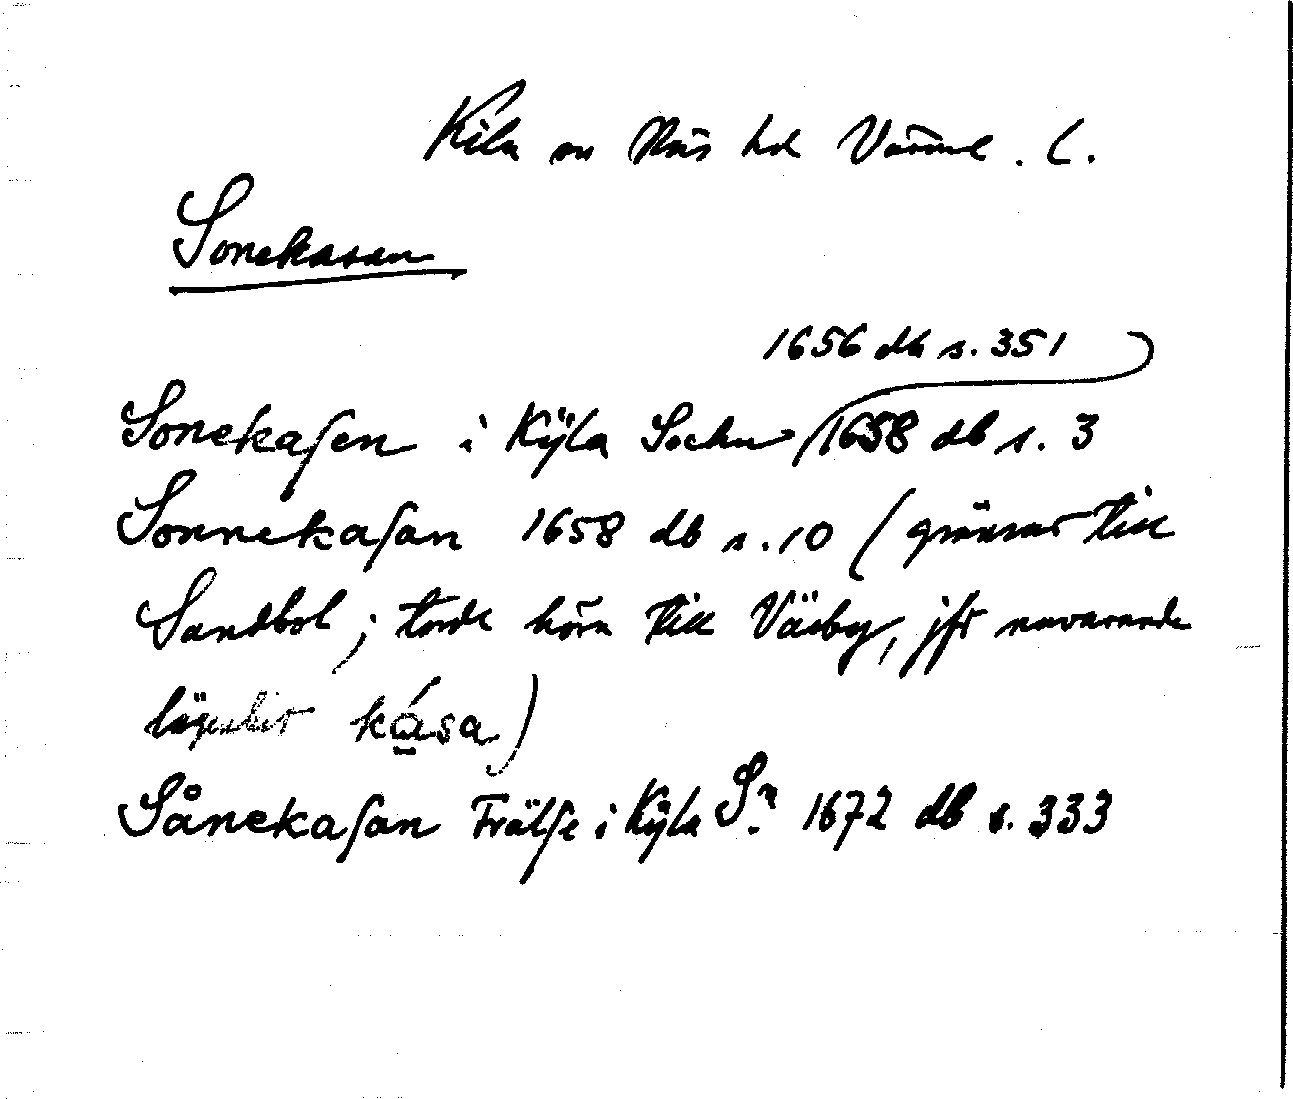 Kila sn Näs hd Värml. l.
Sonekasan
1656 db s. 351
Sonekaſen i Kÿla Sochn 1658 db s. 3
Sonnekaſan 1658 db s. 10 (gränsar till
Sandbol; torde höra till Väsby, jfr nuvarande
lägenhet kása)
Sånekaſan Frälſe i Kÿla Sn 1672 db s. 333